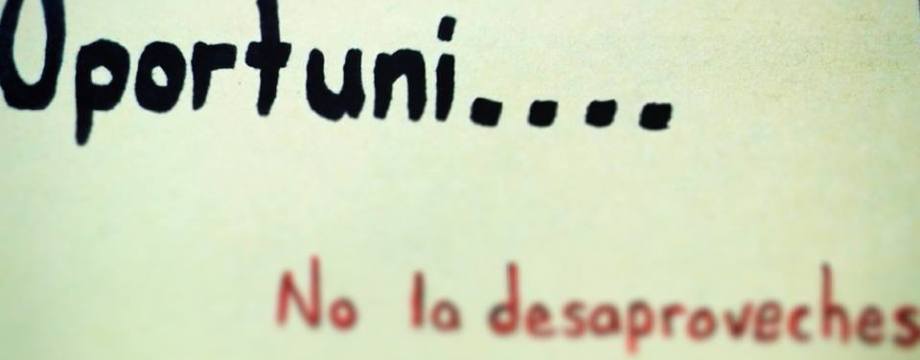 Oportuni....
No la desaproveches